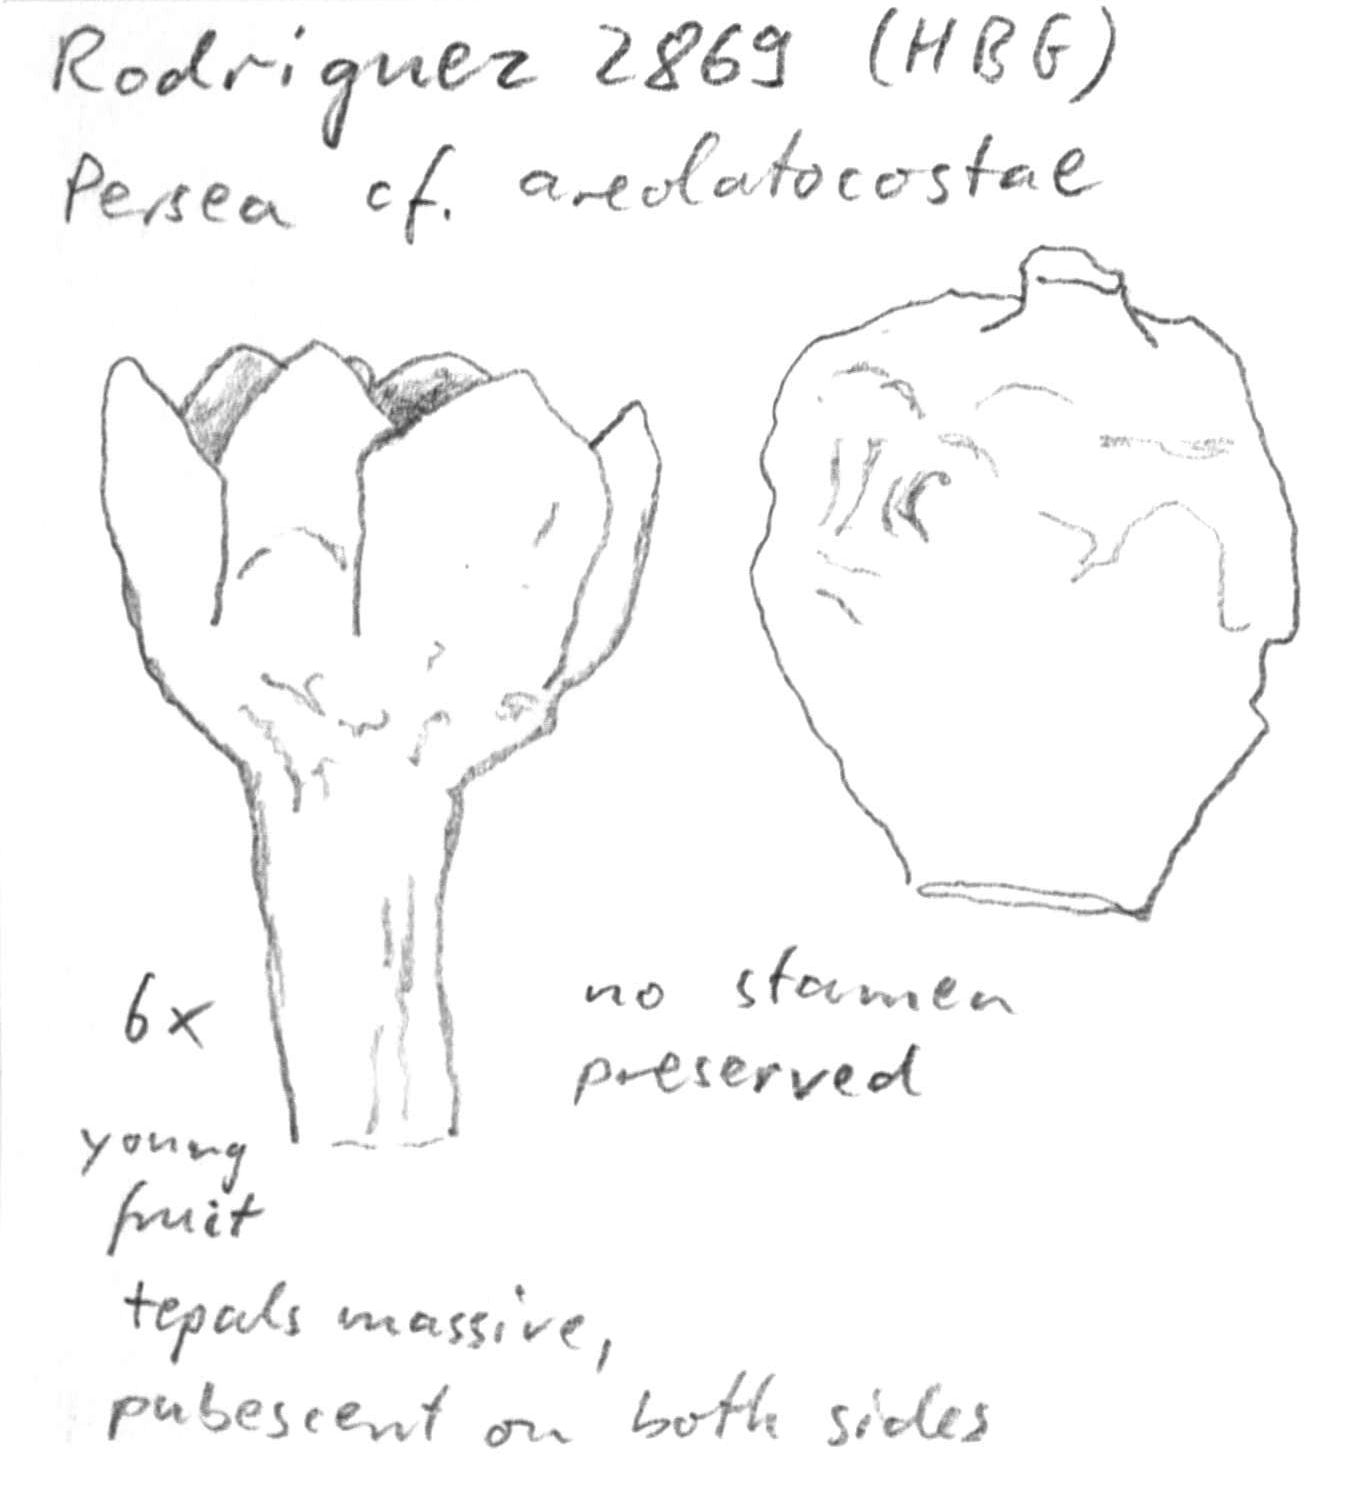 Rodriguez 2869 (HBG)
Persea cf. areolatocostae
6x
no stamen
preserved
young
fruit
tepals massive,
pubescent on both sides